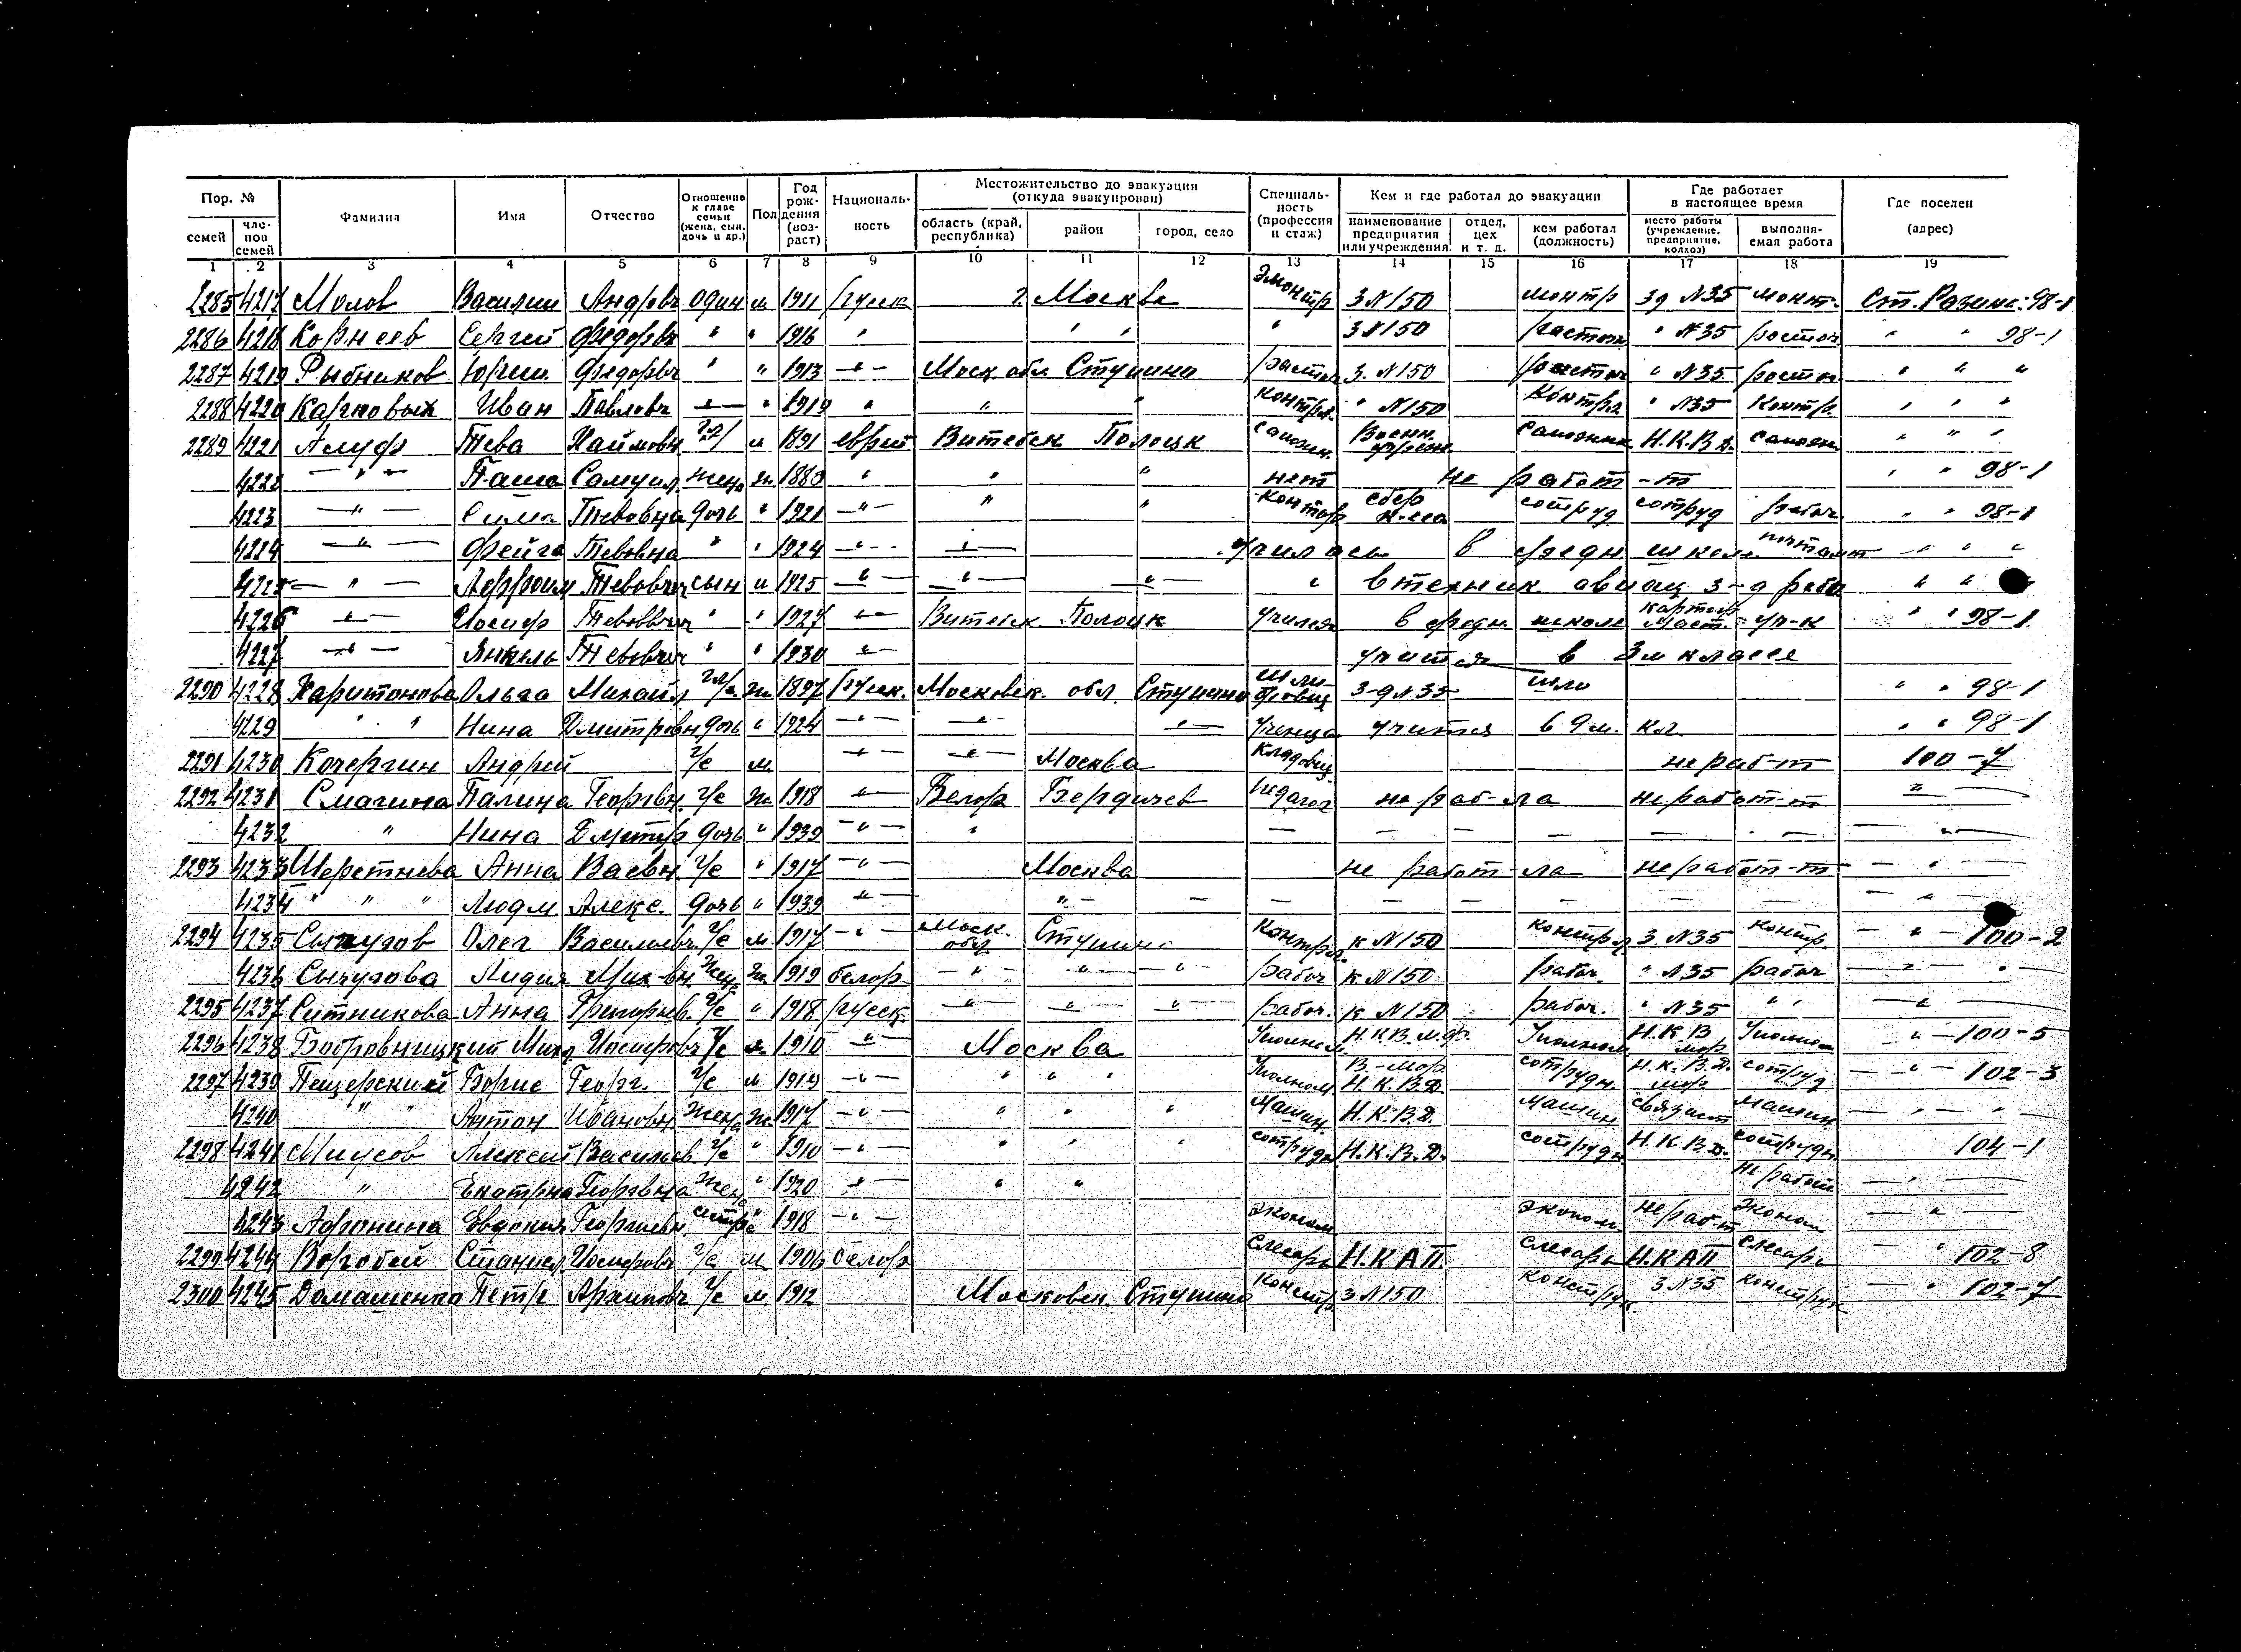 Пор. № Фамилия Имя Отчество Отношение к главе семьи (жена, сын, дочь и др.) Пол Год рождения (возраст) Националь-ность Местожительство до эвакуации (откуда эвакуирован) Специаль-ность (профессия и стаж) Кем и где работал до эвакуации Где работает в настоящее время Где поселен (адрес)
семей чле-нов семей область (край, республика) район город, село наименование предприятия или учреждения отдел, цех и т. д. кем работал (должность) место работы (учреждение, предприятие, колхоз) выполня-емая работа
1 2 3 4 5 6 7 8 9 10 11 12 13 14 15 16 17 18 19
2285 4217 Василии Андрвч один м 1911 русск г Москва Эмонтр З N150 монтр зд N35 монт. Ст. Разина: 98-1
2286 4218 Корнеев Сергей Федорвч " " 1916 " " " " З N150 " N35 расточ " " 98-1
2287 4219 Рыбников Юрии Федорвч " " 1913 -"- Моск обл Ступино расточ З. N150 расточ " N35 расточ " " "
2288 4220 Иван Павловч -"- " 1919 " " " контрол. " N150 контрл " N35 контр. " " "
2289 4221 Алуф Тева Хаймовч гл/ м 1891 еврей Витебск Полоцк сапожн. Военн. сапожник Н.К.В.Д. сапожн " " "
4222 -"- Паша Самуил. жена ж 1880 " " " нет не работ-т " " 98-1
4223 -"- Сима Тевовна дочь " 1921 -"- " " контор сбер касса сотруд сотруд рабоч. " " 98-1
4224 -"- Фейга Тевовна " " 1924 -"- -"- училась в средн школе почтамт " " "
4225 -"- Аффроим Тевович сын м 1925 -"- -"- -"- " в техник авиац з-д рабо " "
4226 -"- Иосиф Тевович " " 1927 -"- Витебск Полоцк учился в средн школе уч-к " " 98-1
4227 -"- Янкель Тевович " " 1930 -"- учится в 3м классе
2290 4228 Харитонова Ольга Михайл гл/с. ж 1897 русск. Московск. обл. Ступино шлифовщ з-д N35 шли " " 98-1
4229 " " Нина Дмитровн дочь " 1924 -"- -"- -"- ученица учится в 9м. кл. " " 98-1
2291 4230 Кочергин Андрей г/с м. -"- -"- Москва кладовщ не раб-т 100-7
2292 4231 Смагина Палина Георгвн. г/с ж 1918 -"- Белор Бердичев педагог не раб-ла не работ-т -"-
4232 " Нина Дмитр дочь " 1939 -"- " - - - - - - -"-
2293 4233 Шерстнева Анна Васвн. г/с " 1917 -"- Москва не работ-ла не работ-т - " -
4234 " " " Людм Алекс. дочь " 1939 -"- "- - - - - - - - - " -
2294 4235 Олег Васильевч г/с м. 1917 -"- Моск. обл Ступино контрол. к N150 контрл З. N35 контр - " - 100-2
4236 Лидия Мих-вн. жен. ж. 1919 белор -"- -"- -"- рабоч к N150 рабоч. " N35 рабоч - " - "
2295 4237 Ситникова Анна Григорьев. г/с " 1918 русск. -"- -"- -"- рабоч. к N150 рабоч. " N35 " " - " -
2296 4238 Бобровницкий Миха Иосифовч г/с м. 1910 -"- Москва Н.К.В. м.ф. Н.К.В мор " - 100-5
2297 4239 Пещерский Борис Георг. г/с м 1919 -"- " " " В.-Мор Н.К.В.Д. сотрудн. Н.К.В.Д. мор сотруд - " - 102-3
4240 " " Антон Ивановн жена ж. 1917 -"- " " " машин. Н.К.В.Д. машин связист машин - " - "
2298 4241 Алексей Васильев г/с " 1910 -"- " " " сотрудн Н.К.В.Д. сотрудн Н.К.В.Д. сотрудн. 104-1
4242 " Екатрна Георгвна жена " 1920 -"- " " не работ - " -
4243 Афонина Евдокия Георгиевн. сестра 1918 -"- эконом эконом не раб-т эконом - " -
2299 4244 Воробей Станисл Иосифовч г/с м 1906 белор слесарь Н.КАП слесарь Н.КАП слесарь - " 102-8
2300 4245 Домашенко Петр Архиповч г/с м 1912 Московск. Ступино констр З N150 конструк. З N35 конструк - " 102-7